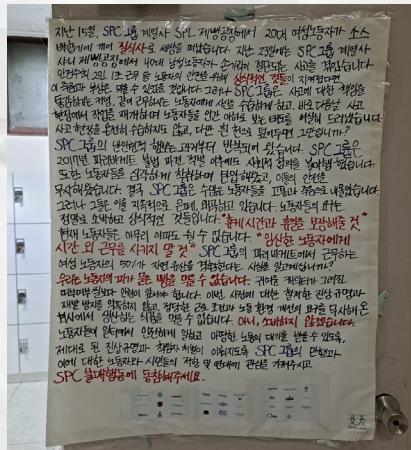 지난 15일, SPC그룹 계열사 SPL 제빵공장에서 20대 여성노동자가 소스
배합기에 끼여 질식사로 세상을 떠났습니다. 지난 23일에는 SPC그룹 계열사
샤니 제빵공장에서 40대 남성노동자가 손가락이 절단되는 사고를 당했습니다.
안전수칙, 2인 1조 근무 등 노동자의 안전을 위해 상식적인 것들이 지켜졌다면,
이 죽음과 부상은 막을 수 있었을 것입니다. 그러나 SPC그룹은 사고에 대한 책임을
동감하기는커녕, 같이 근무하던 노동자에게 시신을 수습하게 하고, 바로 다음날 사고
현장에서 작업을 재개하며 노동자를 인간 이하로 보는 태도를 여실히 드러냈습니다.
사고 현장을 온전히 수습하지도 않고, 단지 흰 천으로 뒤덮어두면 그만입니까?
SPC그룹의 반인권적 행보는 과거부터 반복되어 왔습니다. SPC그룹은
2017년 파리바게뜨 불법 파견 적발 이후에도 사회적 합의를 불이행했습니다.
또한 노동자들을 심각하게 착취하며 탄압해왔고, 이들의 안전을
무시해왔습니다. 결국 SPC그룹은 수많은 노동자들을 고통과 죽음으로 내몰았습니다.
그러나 그들은 이를 지속적으로 은폐, 외면하고 있습니다. 노동자들의 요구는
정말로 소박하고 상식적인 것들입니다. "휴게시간과 휴일을 보장해줄 것"
현재 노동자들은 아무리 아파도 쉴 수 없습니다. "임신한 노동자에게
시간 외 근무를 시키지 말 것" SPC그룹의 파리바게뜨에서 근무하는
여성 노동자의 50%가 자연유산을 경험한다는 사실을 알고계십니까?
우리는 노동자의 피가 묻은 빵을 먹을 수 없습니다. 귀여운 캐릭터가 그려진
재발 방지를 약속하지 않고, 정당한 근로 조건과 노동 환경 개선의 요구를 무시해온
회사에서 생산하는 식품을 먹을 수 없습니다. 아니, 소비하지 않겠습니다.
노동자들이 일터에서 안전하게 일하고 마땅한 노동의 대가를 받을 수 있도록,
제대로 된 진상규명과 책임자 처벌이 이뤄지도록 SPC그룹의 만행과
이에 대한 노동자와 시민들의 저항 및 연대에 관심을 가져주시고
SPC 불매행동에 동참해주세요.